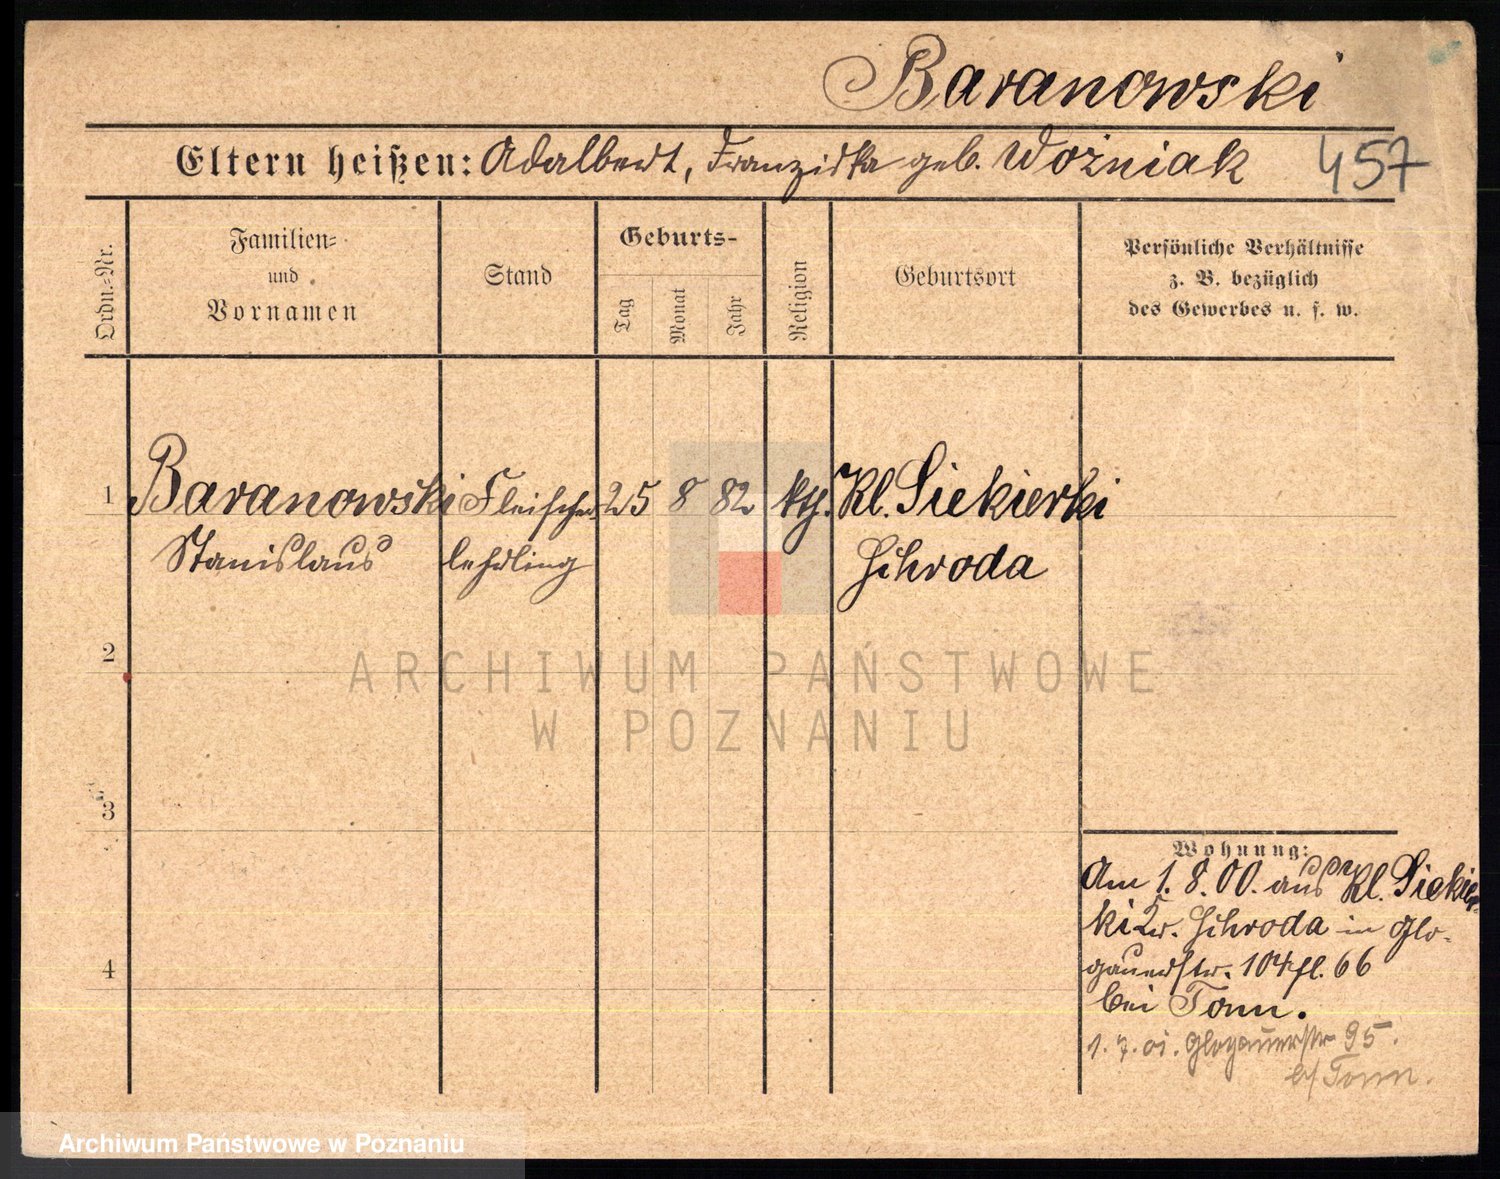 Baranowski
Eltern heißen: Adalbert, Franziska geb. Woźniak 457
Ordn.-Nr.
Familien-
und
Vornamen
Stand
Geburts-
Tag
Monat
Jahr
Religion
Geburtsort
Persönliche Verhältnisse
z. B. bezüglich
des Gewerbes u. s. w.
1 Baranowski Fleischer- 25 8 82 kth. Kl. Siekierki
Stanislaus lehrling Schroda
2
3
4
Wohnung:
Am 1. 8. 00. aus Kl. Siekier-
ki Kr. Schroda in Glo-
gauerstr. 104 fl. 66
bei Tonn.
1. 7. 01. Glogauerstr 95.
b/ Tonn.
ARCHIWUM PAŃSTWOWE
W POZNANIU
Archiwum Państwowe w Poznaniu